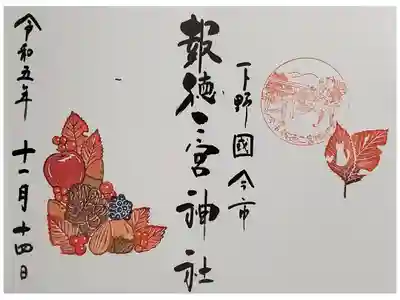 下野國今市
報徳二宮神社
令和五年 十一月十四日